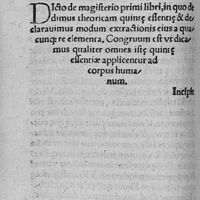 DIcto de magisterio primi libri, in quo de
dimus theoricam quintę essentię & de
clarauimus modum extractionis eius a qua
cunq; re elementa, Congruum est vt dica
mus qualiter omnes istę quintę
essentiæ applicentur ad
corpus huma
num.
Incipit